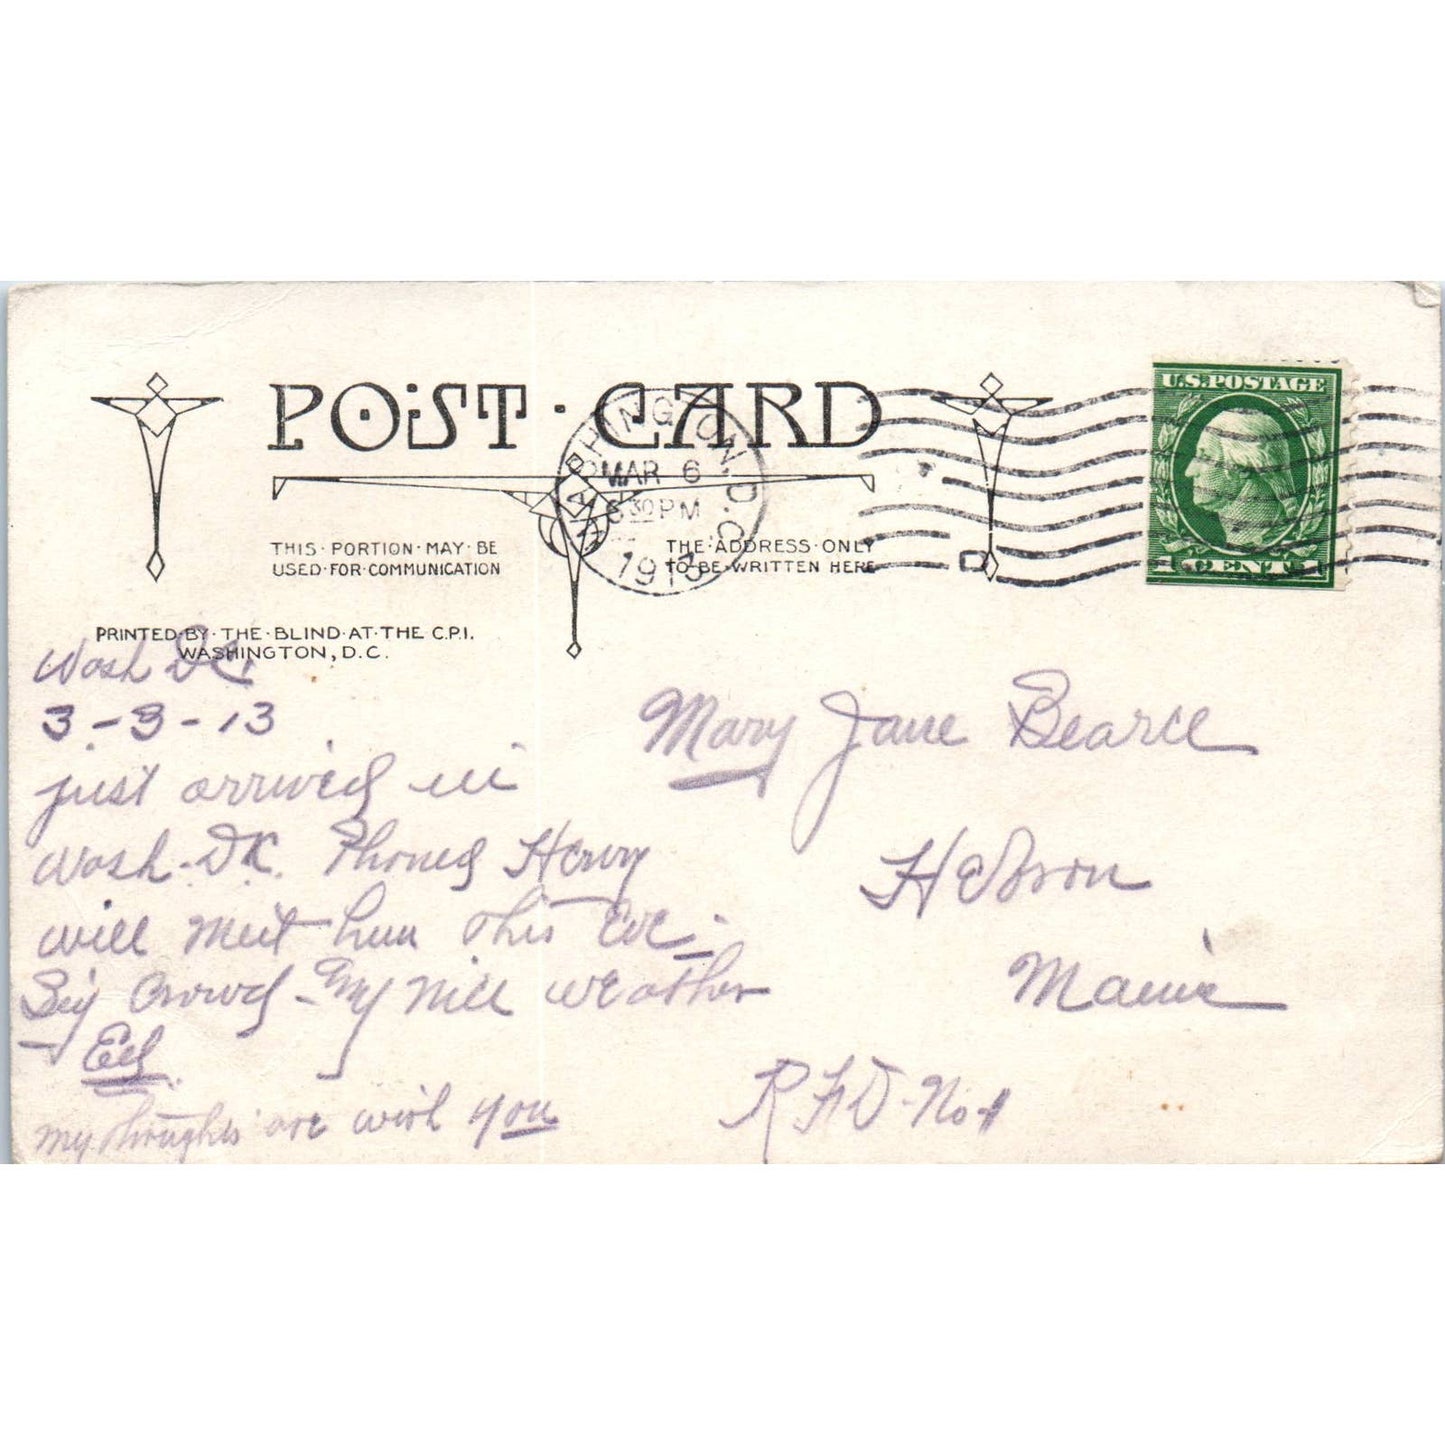 POST · CARD
WASHINGTON, D.C.
MAR 6
30 PM
1913
D
U.S. POSTAGE
1 CENT 1
THIS · PORTION · MAY · BE
USED · FOR · COMMUNICATION
THE · ADDRESS · ONLY
TO · BE · WRITTEN HERE
PRINTED · BY · THE · BLIND · AT · THE C.P.I.
WASHINGTON, D.C.
Wash DC.
3-3-13
just arrived in
Wash. D.C. Phoned Henry
will meet him this Eve.
Big Crowd - nice weather
Ed
my thoughts are with you
Mary Jane Bearce
Hebron
Maine
RFD. No 1